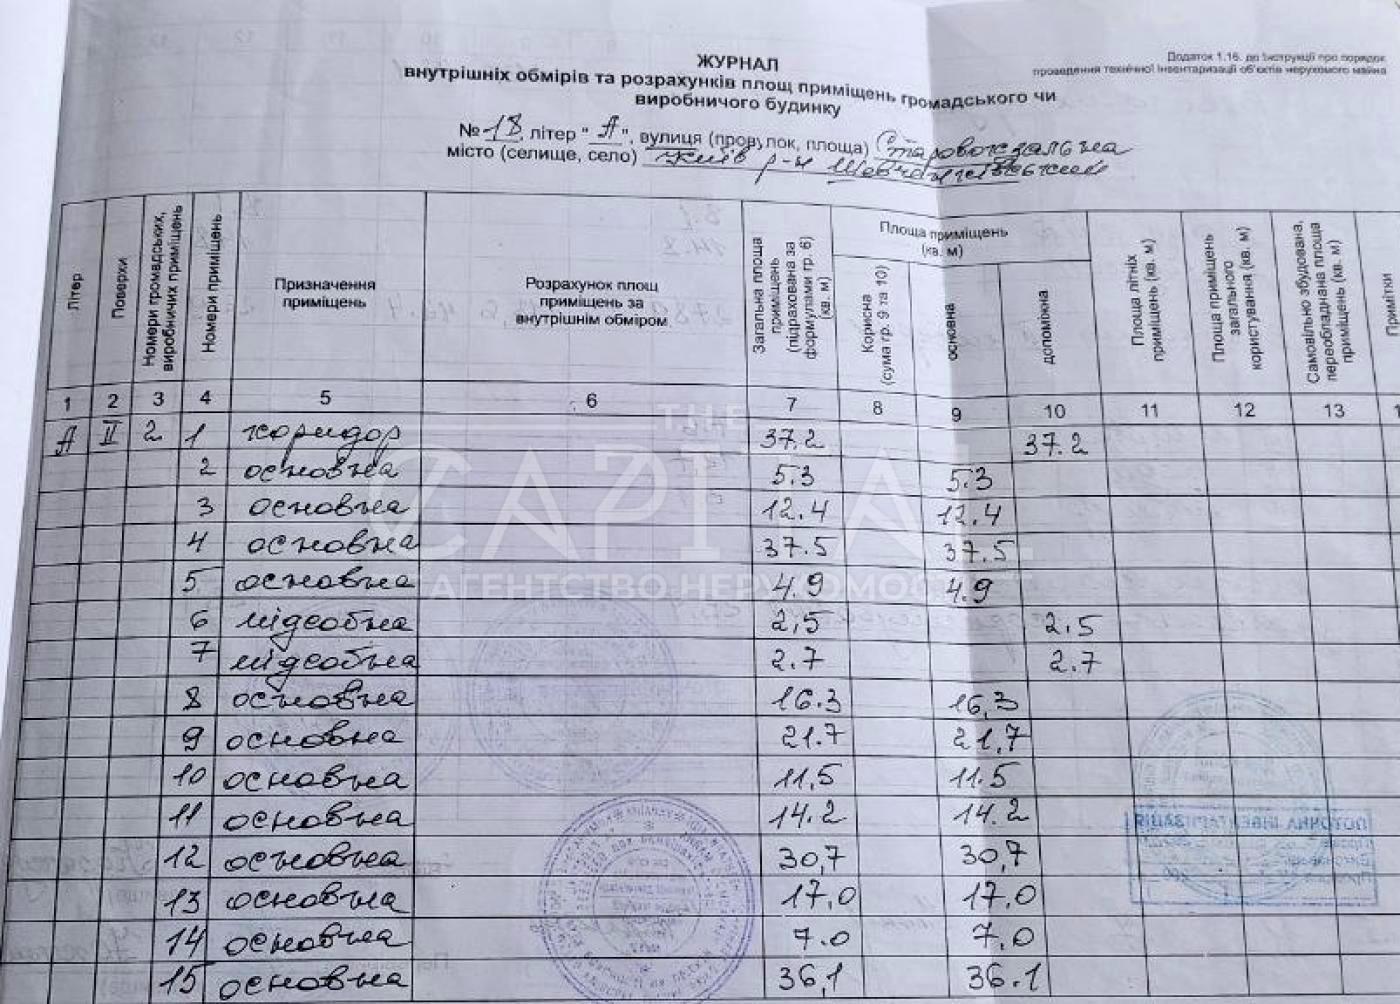 Додаток 1.16. до Інструкції про порядок
проведення технічної інвентаризації об'єктів нерухомого майна
ЖУРНАЛ
внутрішніх обмірів та розрахунків площ приміщень громадського чи
виробничого будинку
№ 18, літер "А", вулиця (провулок, площа) Старовокзальна
місто (селище, село) Київ р-н Шевченківський
Літер Поверхи Номери громадських, виробничих приміщень Номери приміщень Призначення приміщень Розрахунок площ приміщень за внутрішнім обміром Загальна площа приміщень (підрахована за формулами гр. 6) (кв. м) Площа приміщень (кв. м) Корисна (сума гр. 9 та 10) основна допоміжна Площа літніх приміщень (кв. м) Площа приміщень загального користування (кв. м) Самовільно збудована, переобладнана площа приміщень (кв. м) Примітки
1 2 3 4 5 6 7 8 9 10 11 12 13
А ІІ 2 1 коридор 37.2 37.2
2 основна 5.3 5.3
3 основна 12.4 12.4
4 основна 37.5 37.5
5 основна 4.9 4.9
6 підсобна 2,5 2.5
7 підсобна 2.7 2.7
8 основна 16.3 16,3
9 основна 21.7 21,7
10 основна 11,5 11.5
11 основна 14.2 14.2
12 основна 30,7 30,7
13 основна 17,0 17,0
14 основна 7.0 7,0
15 основна 36,1 36.1
THE
CAPITAL
АГЕНТСТВО НЕРУХОМОСТІ